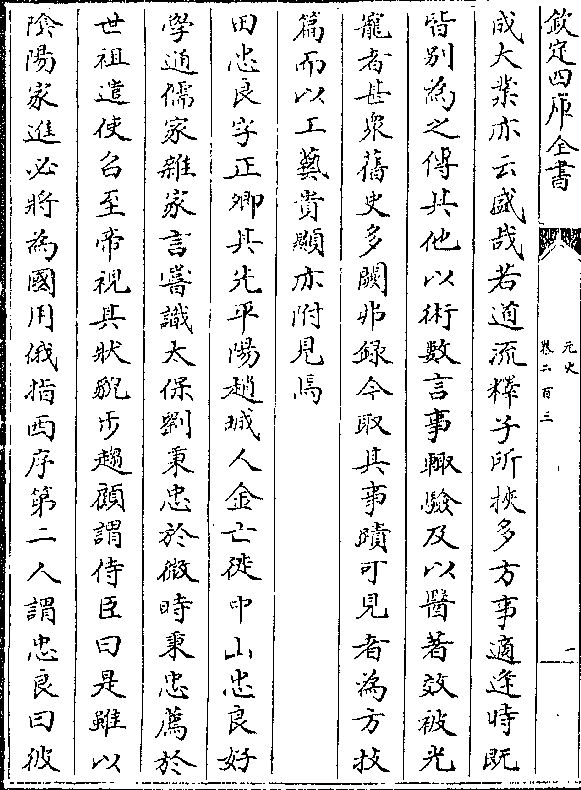 欽定四庫全書
元史
卷二百三
一
成大業亦云盛哉若道流釋子所挾多方事適逢時既
皆別為之傳其他以術數言事輒驗及以醫著效被光
寵者甚衆舊史多闕弗録今取其事蹟可見者為方技
篇而以工藝貴顯亦附見焉
田忠良字正卿其先平陽趙城人金亡徙中山忠良好
學通儒家雜家言嘗識太保劉秉忠於微時秉忠薦於
世祖遣使召至帝視其狀貌步趨顧謂侍臣曰是雖以
隂陽家進必將為國用俄指西序第二人謂忠良曰彼